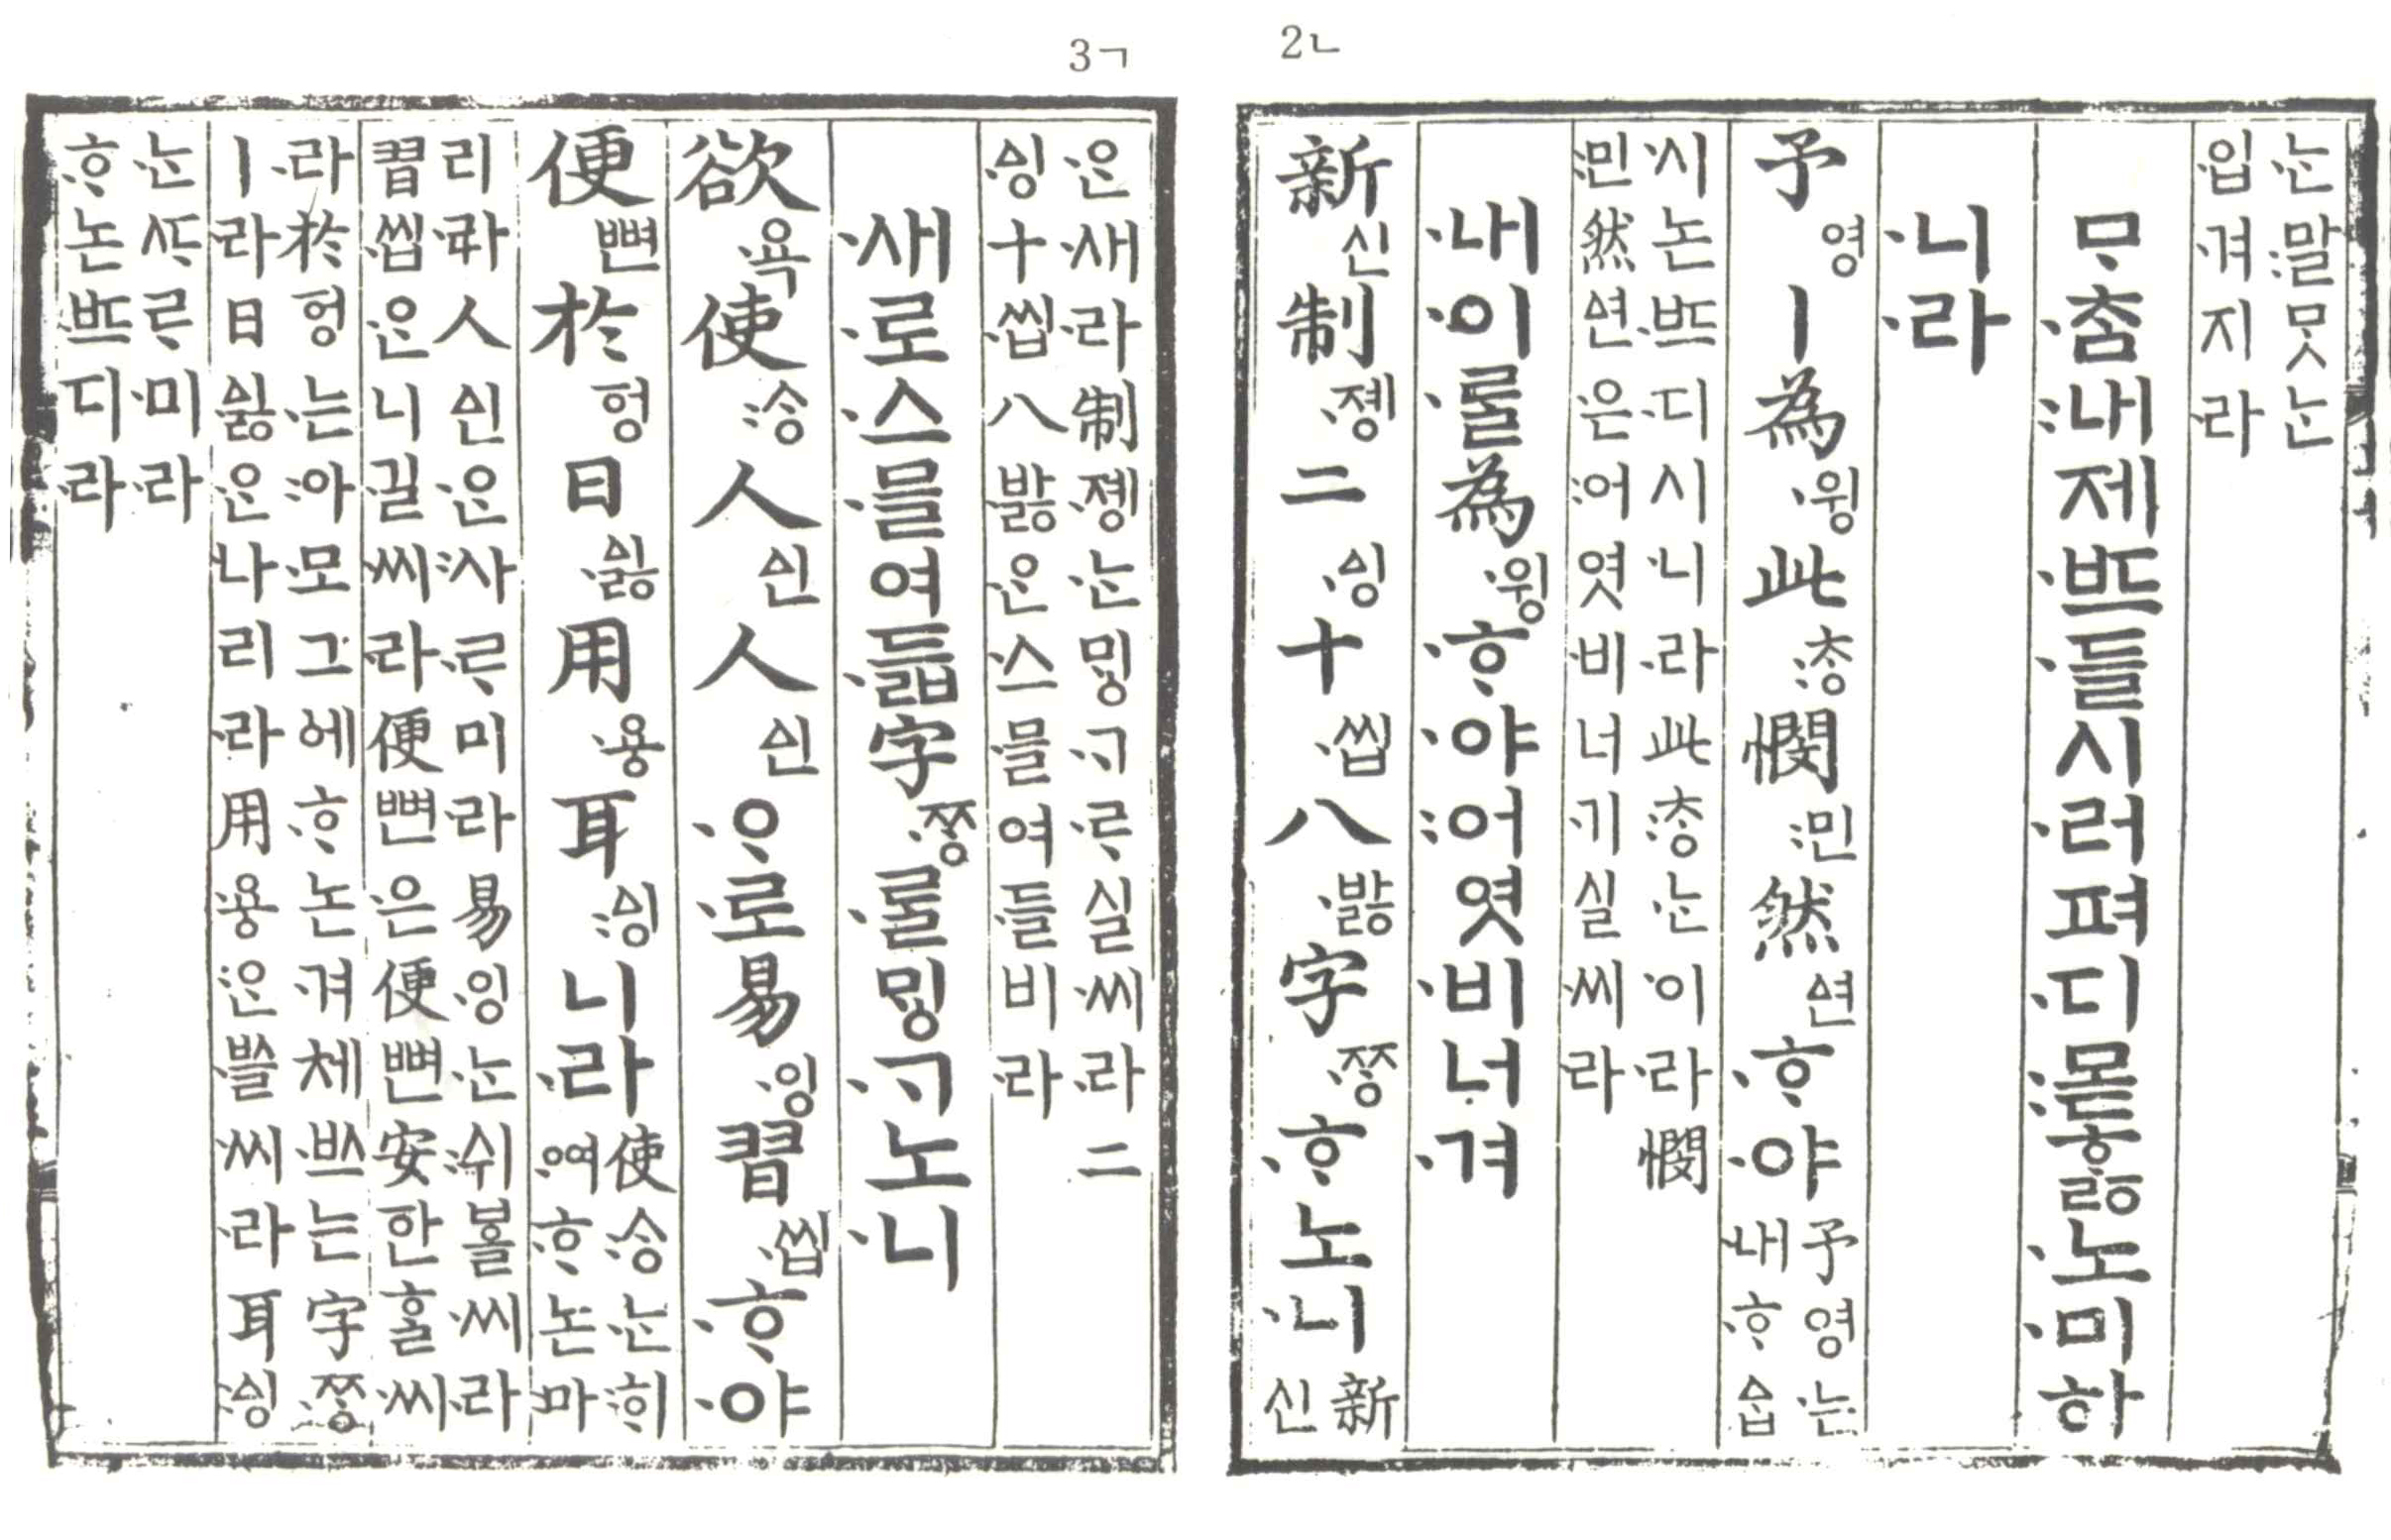 3ㄱ 2ㄴ
ᄂᆞᆫ〮말〯ᄆᆞᆺᄂᆞᆫ〮
입〮겨〮지라〮
ᄆᆞᄎᆞᆷ〮내〯제ᄠᅳ〮들〮시러〮펴디〮몯〯ᄒᆞᇙ노〮미〮하
니〮라〮
予영ㅣ為윙〮此ᄎᆞᆼ〯憫민〯然ᅀᅧᆫᄒᆞ〮야〮予영는〮
내〮ᄒᆞ〮ᅀᆞᆸ
시〮논ᄠᅳ〮디〮시니〮라〮此ᄎᆞᆼ〯ᄂᆞᆫ〮이〮라〮憫
민〯然ᅀᅧᆫ은〮어〯엿비〮너기〮실씨〮라〮
내〮이〮ᄅᆞᆯ〮為윙〮ᄒᆞ〮야〮어〯엿비〮너겨〮
新신制졩〮二ᅀᅵᆼ〮十씹〮八바ᇙ〮字ᄍᆞᆼ〮ᄒᆞ〮노니〮新
신
ᄋᆞᆫ〮새〮라〮制졩〮ᄂᆞᆫ〮ᄆᆡᇰᄀᆞ〮ᄅᆞ〮실씨〮라〮二
ᅀᅵᆼ〮十씹〮八바ᇙ〮ᄋᆞᆫ〮스〮믈〮여들〮비라〮
새〮로〮스〮믈〮여듧〮字ᄍᆞᆼ〮ᄅᆞᆯ〮ᄆᆡᇰᄀᆞ〮노니〮
欲욕〮使ᄉᆞᆼ〯人ᅀᅵᆫ人ᅀᅵᆫᄋᆞ〮로〮易잉〮習씹〮ᄒᆞ〮야〮
便뼌於ᅙᅥᆼ日ᅀᅵᇙ〮用용〮耳ᅀᅵᆼ〯니라〮使ᄉᆞᆼ〯ᄂᆞᆫ〮ᄒᆡ〯
ᅇᅧ〮ᄒᆞ〮논마〯
리라〮人ᅀᅵᆫᄋᆞᆫ〮사〯ᄅᆞ〮미라〮易잉〮ᄂᆞᆫ〮쉬〯ᄫᅳᆯ씨〮라〮
習씹〮ᄋᆞᆫ〮니길〮씨〮라〮便뼌은〮便뼌安ᅙᅡᆫᄒᆞᆯ씨〮
라〮於ᅙᅥᆼ는〮아〯모〮그ᅌᅦᄒᆞ〮논겨〮체ᄡᅳ〮는字ᄍᆞᆼ〮
ㅣ라〮日ᅀᅵᇙ〮ᄋᆞᆫ〮나〮리라〮用용〮ᄋᆞᆫ〮ᄡᅳᆯ〮씨〮라〮耳ᅀᅵᆼ〯
ᄂᆞᆫ〮ᄯᆞᄅᆞ〮미〮라〮
ᄒᆞ〮논ᄠᅳ〮디라〮